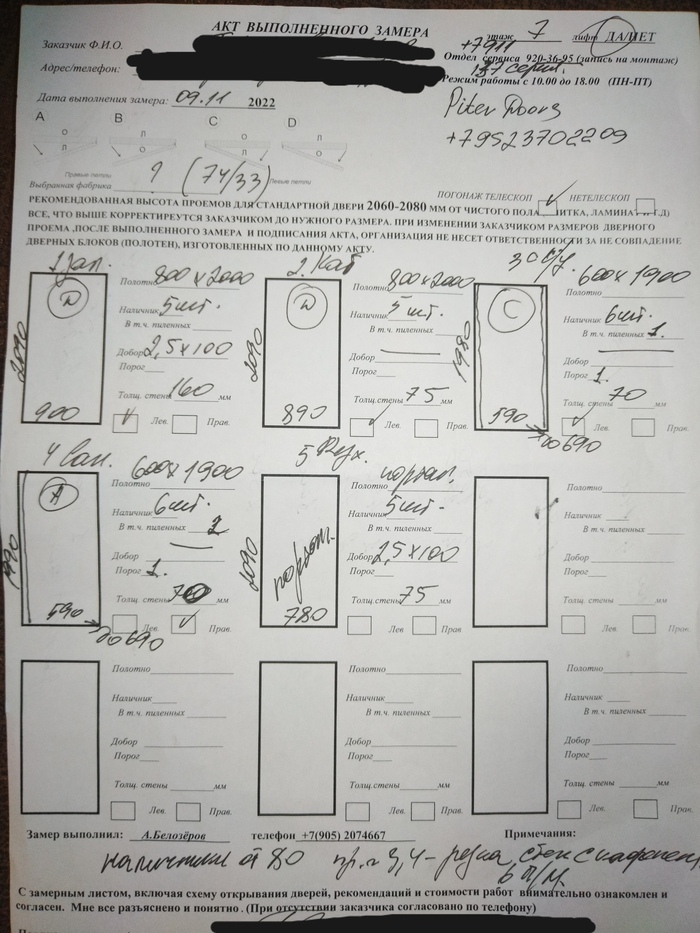 АКТ ВЫПОЛНЕННОГО ЗАМЕРА
этаж 7 лифт ДА/НЕТ
Заказчик Ф.И.О.
+7911
Отдел сервиса 920-36-95 (запись на монтаж)
Адрес/телефон:
137 серия.
Режим работы с 10.00 до 18.00 (ПН-ПТ)
Дата выполнения замера: 09.11 2022
Piter Doors
+79523702209
A B C D
О Л О Л
Л О Л О
Прямые петли Левые петли
Выбранная фабрика ? (74/33)
ПОГОНАЖ ТЕЛЕСКОП НЕТЕЛЕСКОП
РЕКОМЕНДОВАННАЯ ВЫСОТА ПРОЕМОВ ДЛЯ СТАНДАРТНОЙ ДВЕРИ 2060-2080 ММ ОТ ЧИСТОГО ПОЛА
ВСЕ, ЧТО ВЫШЕ КОРРЕКТИРЕУТСЯ ЗАКАЗЧИКОМ ДО НУЖНОГО РАЗМЕРА. ПРИ ИЗМЕНЕНИИ ЗАКАЗЧИКОМ РАЗМЕРОВ ДВЕРНОГО
ПРОЕМА ,ПОСЛЕ ВЫПОЛНЕННОГО ЗАМЕРА И ПОДПИСАНИЯ АКТА, ОРГАНИЗАЦИЯ НЕ НЕСЕТ ОТВЕТСТВЕННОСТИ ЗА НЕ СОВПАДЕНИЕ
ДВЕРНЫХ БЛОКОВ (ПОЛОТЕН), ИЗГОТОВЛЕННЫХ ПО ДАННОМУ АКТУ.
1 зал.
Полотно 800x2000
D
Наличник 5 шт.
В т.ч. пиленных
2090
Добор 2,5x100
Порог
Толщ. стены 160 мм
900
Лев. Прав.
2. Каб
Полотно 800x2000
D
Наличник 5 шт.
В т.ч. пиленных
2090
Добор
Порог
Толщ. стены 75 мм
890
Лев. Прав.
3 С/у
600x1900
Полотно
C
Наличник 6шт.
В т.ч. пиленных 1.
1980
Добор
Порог 1.
Толщ. стены 70 мм
590
до 690
Лев. Прав.
4 Ван.
600x1900
Полотно
A
Наличник 6шт.
В т.ч. пиленных 2
1990
Добор
Порог 1.
Толщ. стены 70 мм
590
до 690
Лев. Прав.
5 Кух.
Полотно портал.
Наличник 5шт.
В т.ч. пиленных
2090
портал.
Добор 2,5x100
Порог
Толщ. стены 75 мм
780
Лев. Прав
Полотно
Наличник
В т.ч. пиленных
Добор
Порог
Толщ. стены мм
Лев. Прав.
Полотно
Наличник
В т.ч. пиленных
Добор
Порог
Толщ. стены мм
Лев. Прав.
Полотно
Наличник
В т.ч. пиленных
Добор
Порог
Толщ. стены мм
Лев. Прав.
Полотно
Наличник
В т.ч. пиленных
Добор
Порог
Толщ. стены мм
Лев. Прав.
Замер выполнил: А.Белозёров телефон +7(905) 2074667 Примечания:
наличники от 80 пр. 3,4 - резка стен
С замерным листом, включая схему открывания дверей, рекомендаций и стоимости работ внимательно ознакомлен и
согласен. Мне все разъяснено и понятно . (При отсутствии заказчика согласовано по телефону)